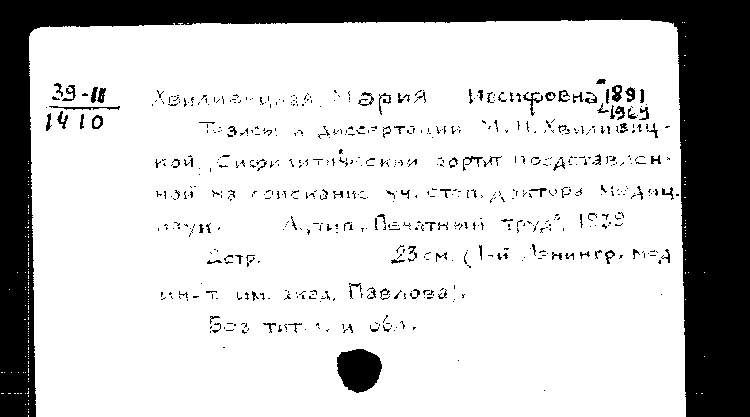 39-II
1410
Хвиливицкая, Мария Иосифовна, 1891
-1969
Тезисы к диссертации М. И. Хвиливиц-
кой, "Сифилитический аортит представлен-
ной на соискание уч. степ. доктора медиц.
наук. Л., тип. "Печатный труд", 1939
2стр. 23 см. (1-й Ленингр. мед
ин-т им. акад. Павлова).
Без тит. л. и обл.